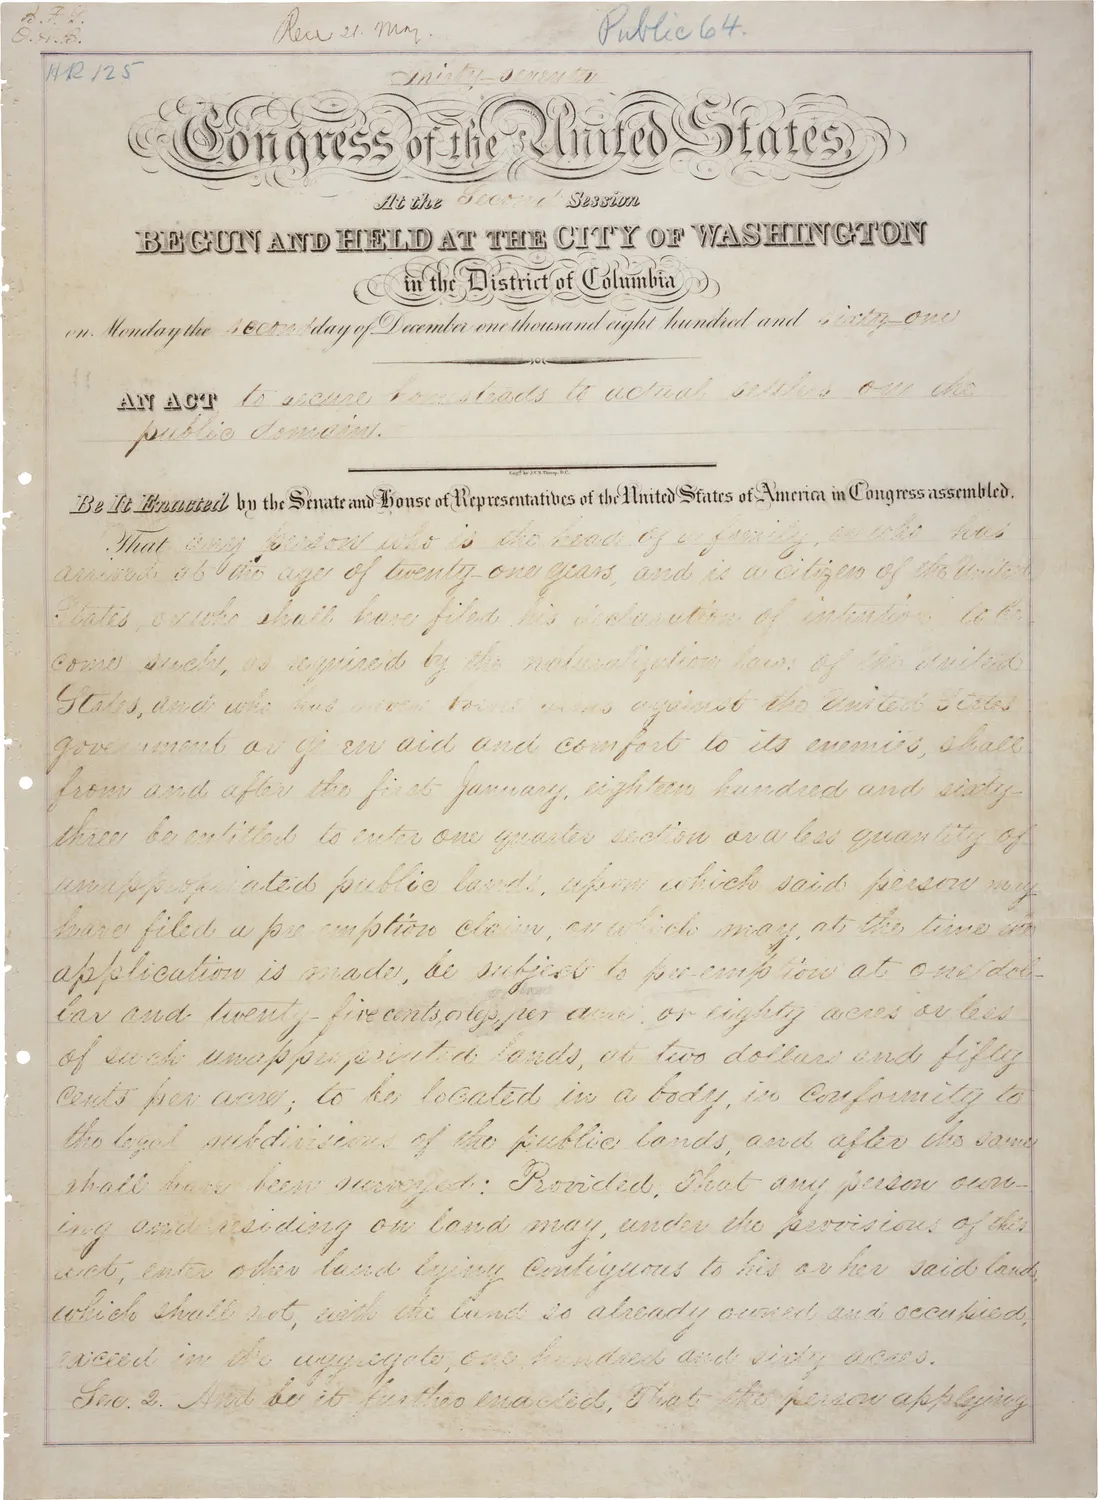 Rec 21. May.
Public 64.
HR 125
Thirty-seventh
Congress of the United States,
At the Second Session
BEGUN AND HELD AT THE CITY OF WASHINGTON
in the District of Columbia
on Monday the second day of December one thousand eight hundred and sixty-one
AN ACT to secure homesteads to actual settlers on the
public domain.
Be It Enacted by the Senate and House of Representatives of the United States of America in Congress assembled,
That any person who is the head of a family, or who has
arrived at the age of twenty-one years, and is a citizen of the United
States, or who shall have filed his declaration of intention to be-
come such, as required by the naturalization laws of the United
States, and who has never borne arms against the United States
government or given aid and comfort to its enemies, shall
from and after the first January, eighteen hundred and sixty-
three be entitled to enter one quarter section or a less quantity of
unappropriated public lands, upon which said person may
have filed a pre emption claim, or which may, at the time
application is made, be subject to pre-emption at one dol-
lar and twenty-five cents, or less, per acre; or eighty acres or less
of such unappropriated lands, at two dollars and fifty
cents per acre; to be located in a body, in conformity to
the legal subdivisions of the public lands, and after the same
shall have been surveyed: Provided, That any person own-
ing and residing on land may, under the provisions of this
act, enter other land lying contiguous to his or her said land,
which shall not, with the land so already owned and occupied,
exceed in the aggregate, one hundred and sixty acres.
Sec. 2. And be it further enacted, That the person applying